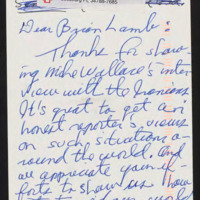 Dear Brian Lamb:
Thanks for show-
ing Mike Wallace's inter-
view with the Iranians
It's great to get an
honest reporter's views
on such situations a-
round the world. And
we appreciate your ef-
forts to show us how